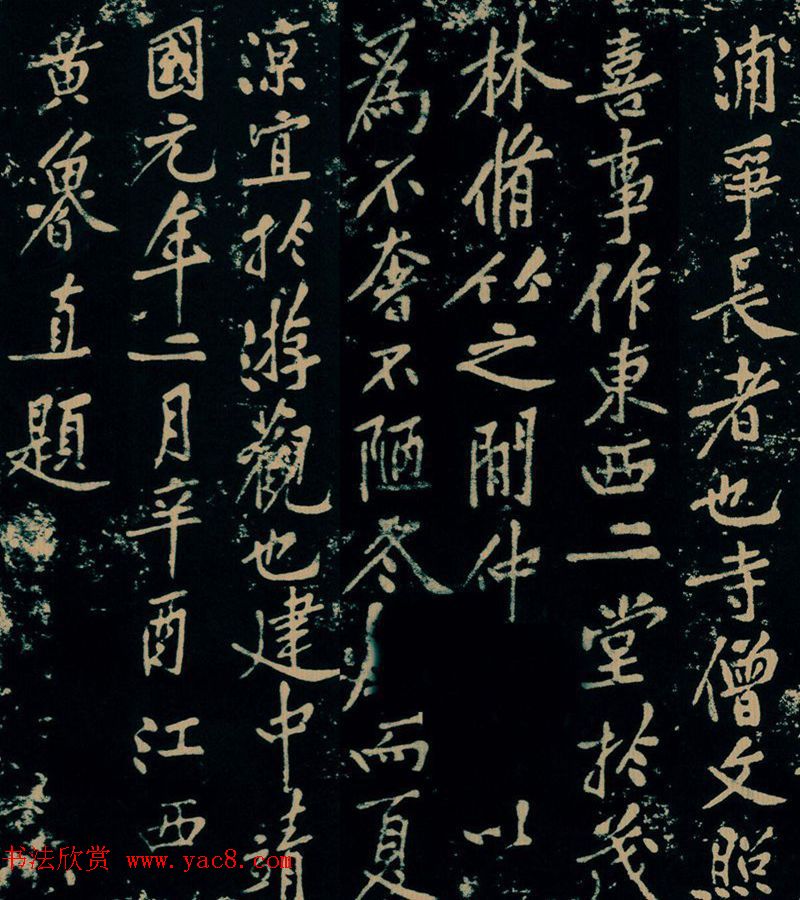 浦爭長者也寺僧文照
喜事作東西二堂於茂
林脩竹之間仲 以
為不奢不陋冬 而夏
涼宜於游觀也建中靖
國元年二月辛酉江西
黄魯直題
书法欣赏 www.yac8.com